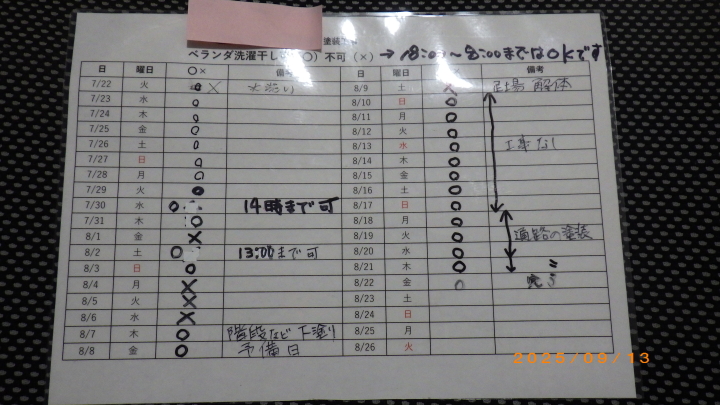 塗装工
ベランダ洗濯干し 〇）不可（×）→18:00〜8:00まではOKです
日 曜日 〇× 備考 日 曜日 備考
7/22 火 × 8/9 土 × 足場解体
7/23 水 〇 8/10 日 〇
7/24 木 〇 8/11 月 〇
7/25 金 〇 8/12 火 〇
7/26 土 〇 8/13 水 〇 工事なし
7/27 日 〇 8/14 木 〇
7/28 月 〇 8/15 金 〇
7/29 火 〇 8/16 土 〇
7/30 水 〇 14時まで可 8/17 日 〇
7/31 木 〇 8/18 月 〇
8/1 金 × 8/19 火 〇 通路の塗装
8/2 土 〇 13:00まで可 8/20 水 〇
8/3 日 〇 8/21 木 〇 〃
8/4 月 × 8/22 金 〇
8/5 火 × 8/23 土
8/6 水 × 8/24 日
8/7 木 〇 階段など下塗り 8/25 月
8/8 金 〇 予備日 8/26 火
2025/09/13